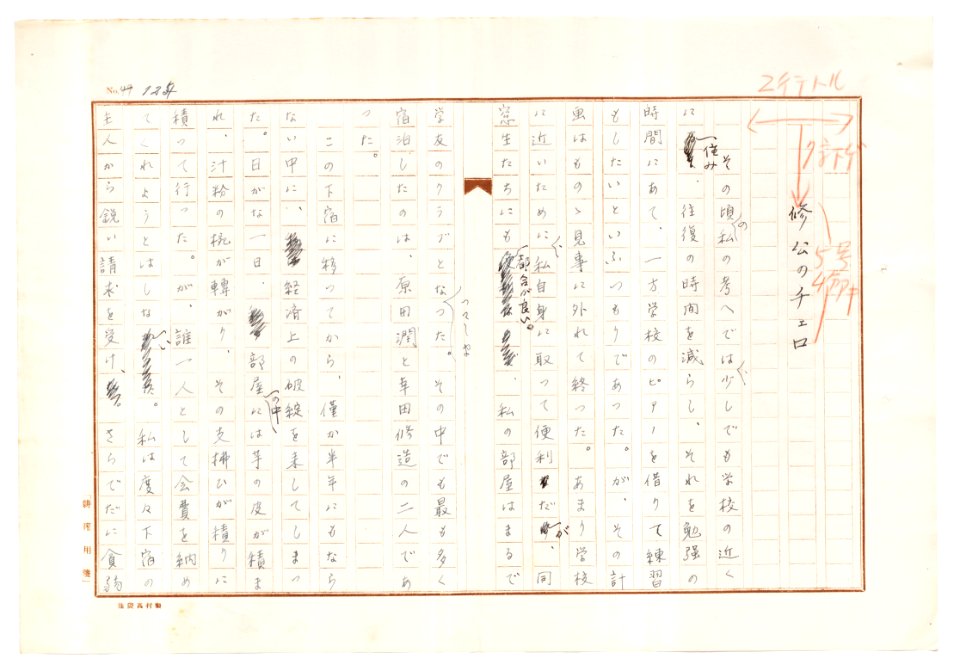 No. 44 12字
2チテトル
7字下ゲ
5号
4分アキ
修公のチェロ
その頃私の考へでは少しでも学校の近く
に住み、往復の時間を減らし、それを勉強の
時間にあて、一方学校のピアノを借りて練習
もしたいといふつもりであつた。が、その計
画はものゝ見事に外れて終つた。あまり学校
に近いために私自身に取つて便利だが、同
窓生たちにも都合が良い。私の部屋はまるで
学友のクラブとなつた。その中でも最も多く
宿泊したのは、原田潤と車田修造の二人であ
つた。
この下宿に移つてから、僅か半年にもなら
ない中に、経済上の破綻を来してしまつ
た。日がな一日、部屋の中には芋の皮が積ま
れ、汁粉の椀が轉がり、その支拂ひが積りに
積つて行つた。が、誰一人として会費を納め
てくれようとはしない。私は度々下宿の
主人から鋭い請求を受け、さらでだに貧弱